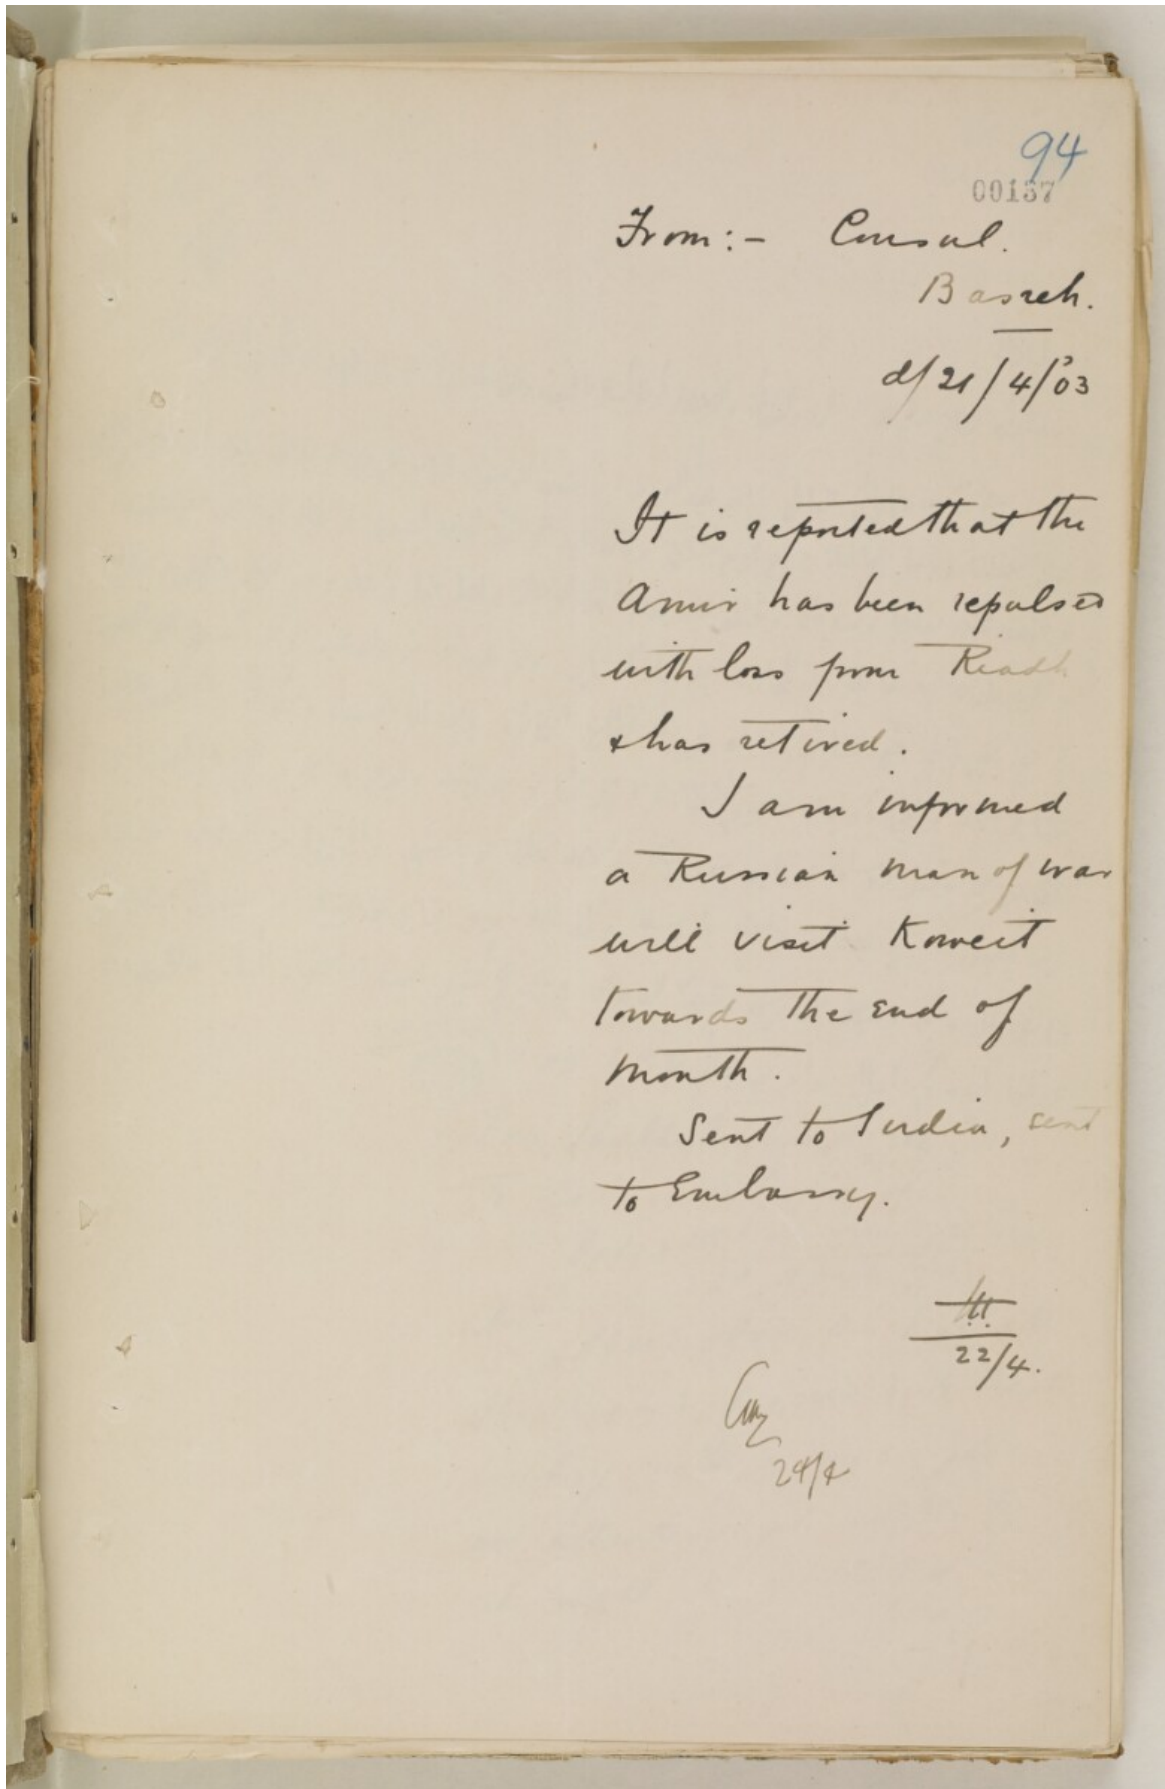 94
00137
From:- Consul.
Basreh.
d/21/4/'03
It is reported that the
Amir has been repulsed
with loss from Riadh
& has retired.
I am informed
a Russian man of war
will visit Koweit
towards the end of
month.
Sent to India, sent
to Embassy.
22/4.
24/4